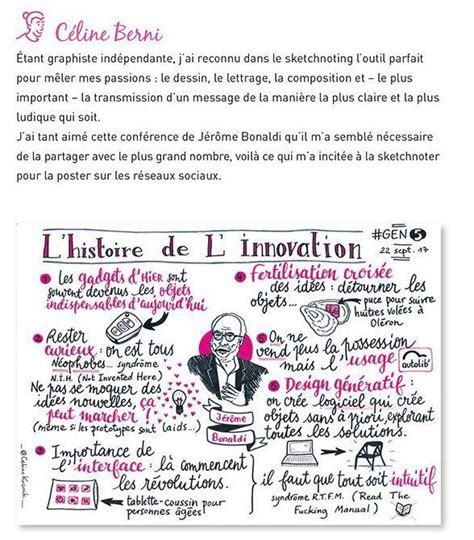 Céline Berni
Étant graphiste indépendante, j'ai reconnu dans le sketchnoting l'outil parfait
pour mêler mes passions : le dessin, le lettrage, la composition et – le plus
important – la transmission d'un message de la manière la plus claire et la plus
ludique qui soit.
J'ai tant aimé cette conférence de Jérôme Bonaldi qu'il m'a semblé nécessaire
de la partager avec le plus grand nombre, voilà ce qui m'a incitée à la sketchnoter
pour la poster sur les réseaux sociaux.
L'histoire de L'innovation
#GEN 5
22 sept. 17
1 Les gadgets d'HIER sont
souvent devenus les objets
indispensables d'aujourd'hui
2 Rester
curieux : on est tous
Néophobes... syndrome
N.I.H (Not Invented Here)
Ne pas se moquer des
idées nouvelles, ça
peut marcher !
(même si les prototypes sont laids...)
3 Importance de
l'interface : là commencent
les révolutions.
tablette-coussin pour
personnes âgées
Jérôme
Bonaldi
4 fertilisation croisée
des idées : détourner les
objets...
puce pour suivre
huîtres volées à
Oléron
5 On ne
vend plus la possession
mais l'usage
autolib'
6 Design génératif :
on crée 1 logiciel qui crée
objets sans à priori, explorant
toutes les solutions.
il faut que tout soit intuitif
syndrome R.T.F.M. (Read The
Fucking Manual)